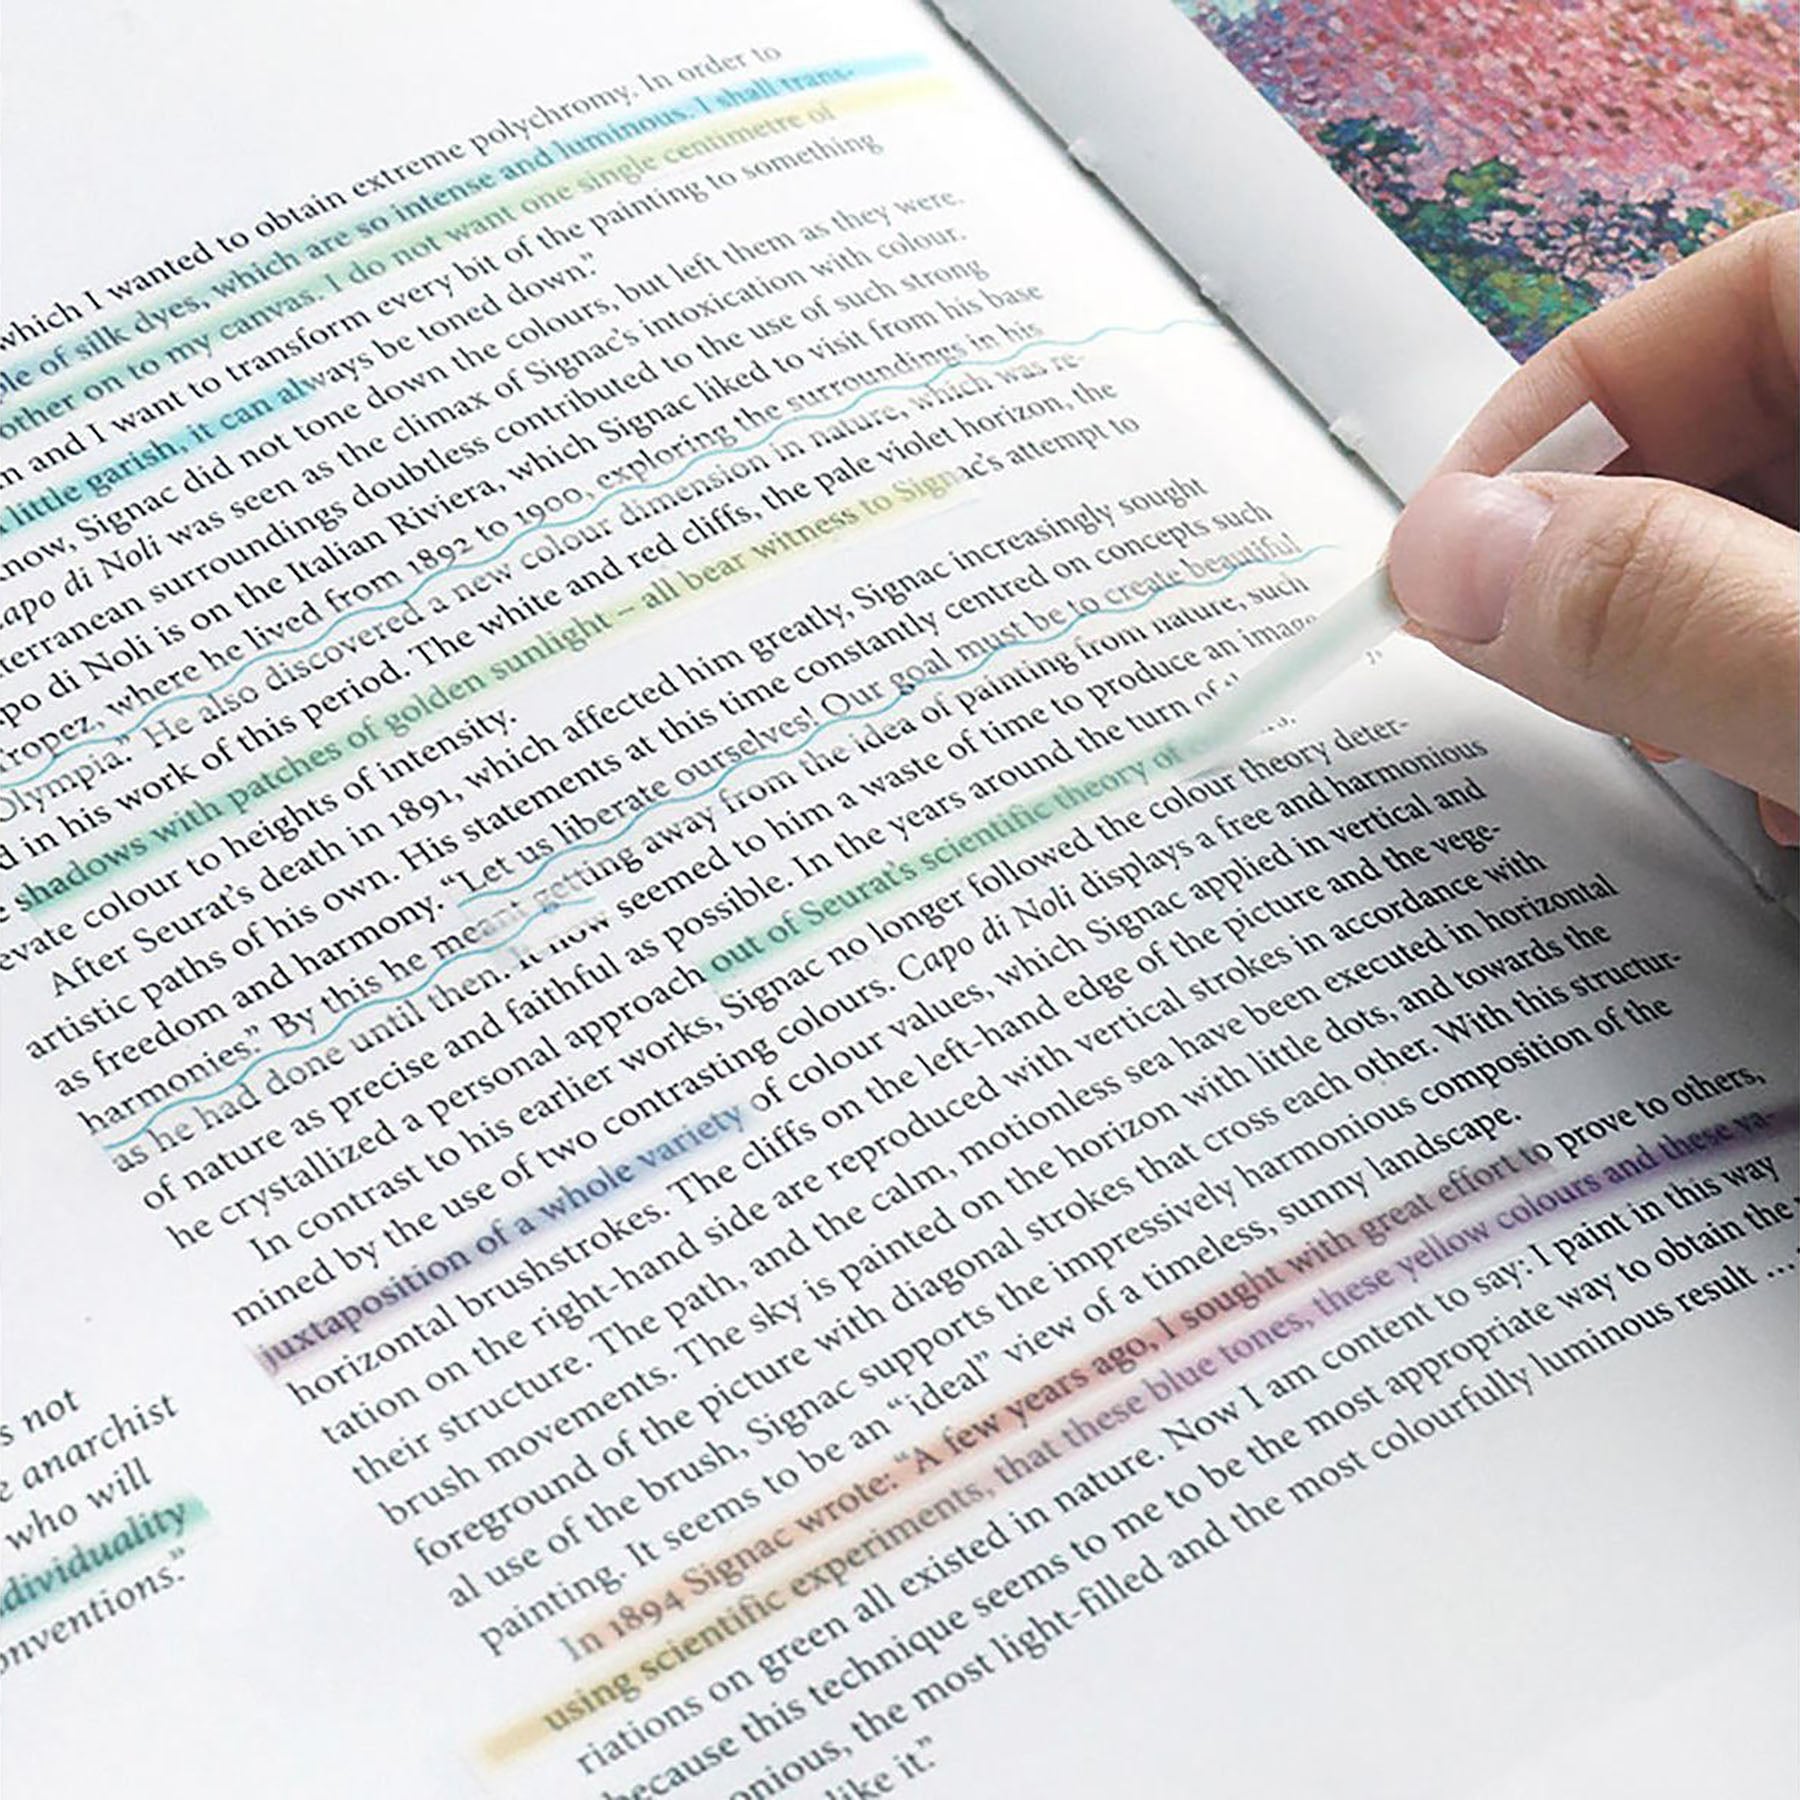 which I wanted to obtain extreme polychromy. In order to
of silk dyes, which are so intense and luminous. I shall trans-
other on to my canvas. I do not want one single centimetre of
and I want to transform every bit of the painting to something
little garish, it can always be toned down.”
Signac did not tone down the colours, but left them as they were.
Capo di Noli was seen as the climax of Signac’s intoxication with colour.
surroundings doubtless contributed to the use of such strong
di Noli is on the Italian Riviera, which Signac liked to visit from his base
Tropez, where he lived from 1892 to 1900, exploring the surroundings in his
Olympia.” He also discovered a new colour dimension in nature, which was re-
in his work of this period. The white and red cliffs, the pale violet horizon, the
shadows with patches of golden sunlight – all bear witness to Signac’s attempt to
colour to heights of intensity.
After Seurat’s death in 1891, which affected him greatly, Signac increasingly sought
artistic paths of his own. His statements at this time constantly centred on concepts such
as freedom and harmony. “Let us liberate ourselves! Our goal must be to create beautiful
harmonies.” By this he meant getting away from the idea of painting from nature, such
as he had done until then. It now seemed to him a waste of time to produce an image
of nature as precise and faithful as possible. In the years around the turn of
he crystallized a personal approach out of Seurat’s scientific theory of
In contrast to his earlier works, Signac no longer followed the colour theory deter-
mined by the use of two contrasting colours. Capo di Noli displays a free and harmonious
juxtaposition of a whole variety of colour values, which Signac applied in vertical and
horizontal brushstrokes. The cliffs on the left-hand edge of the picture and the vege-
tation on the right-hand side are reproduced with vertical strokes in accordance with
their structure. The path, and the calm, motionless sea have been executed in horizontal
brush movements. The sky is painted on the horizon with little dots, and towards the
foreground of the picture with diagonal strokes that cross each other. With this structur-
al use of the brush, Signac supports the impressively harmonious composition of the
painting. It seems to be an “ideal” view of a timeless, sunny landscape.
In 1894 Signac wrote: “A few years ago, I sought with great effort to prove to others,
using scientific experiments, that these blue tones, these yellow colours and these va-
riations on green all existed in nature. Now I am content to say: I paint in this way
because this technique seems to me to be the most appropriate way to obtain the
the most light-filled and the most colourfully luminous result ...
like it.”
not
anarchist
who will